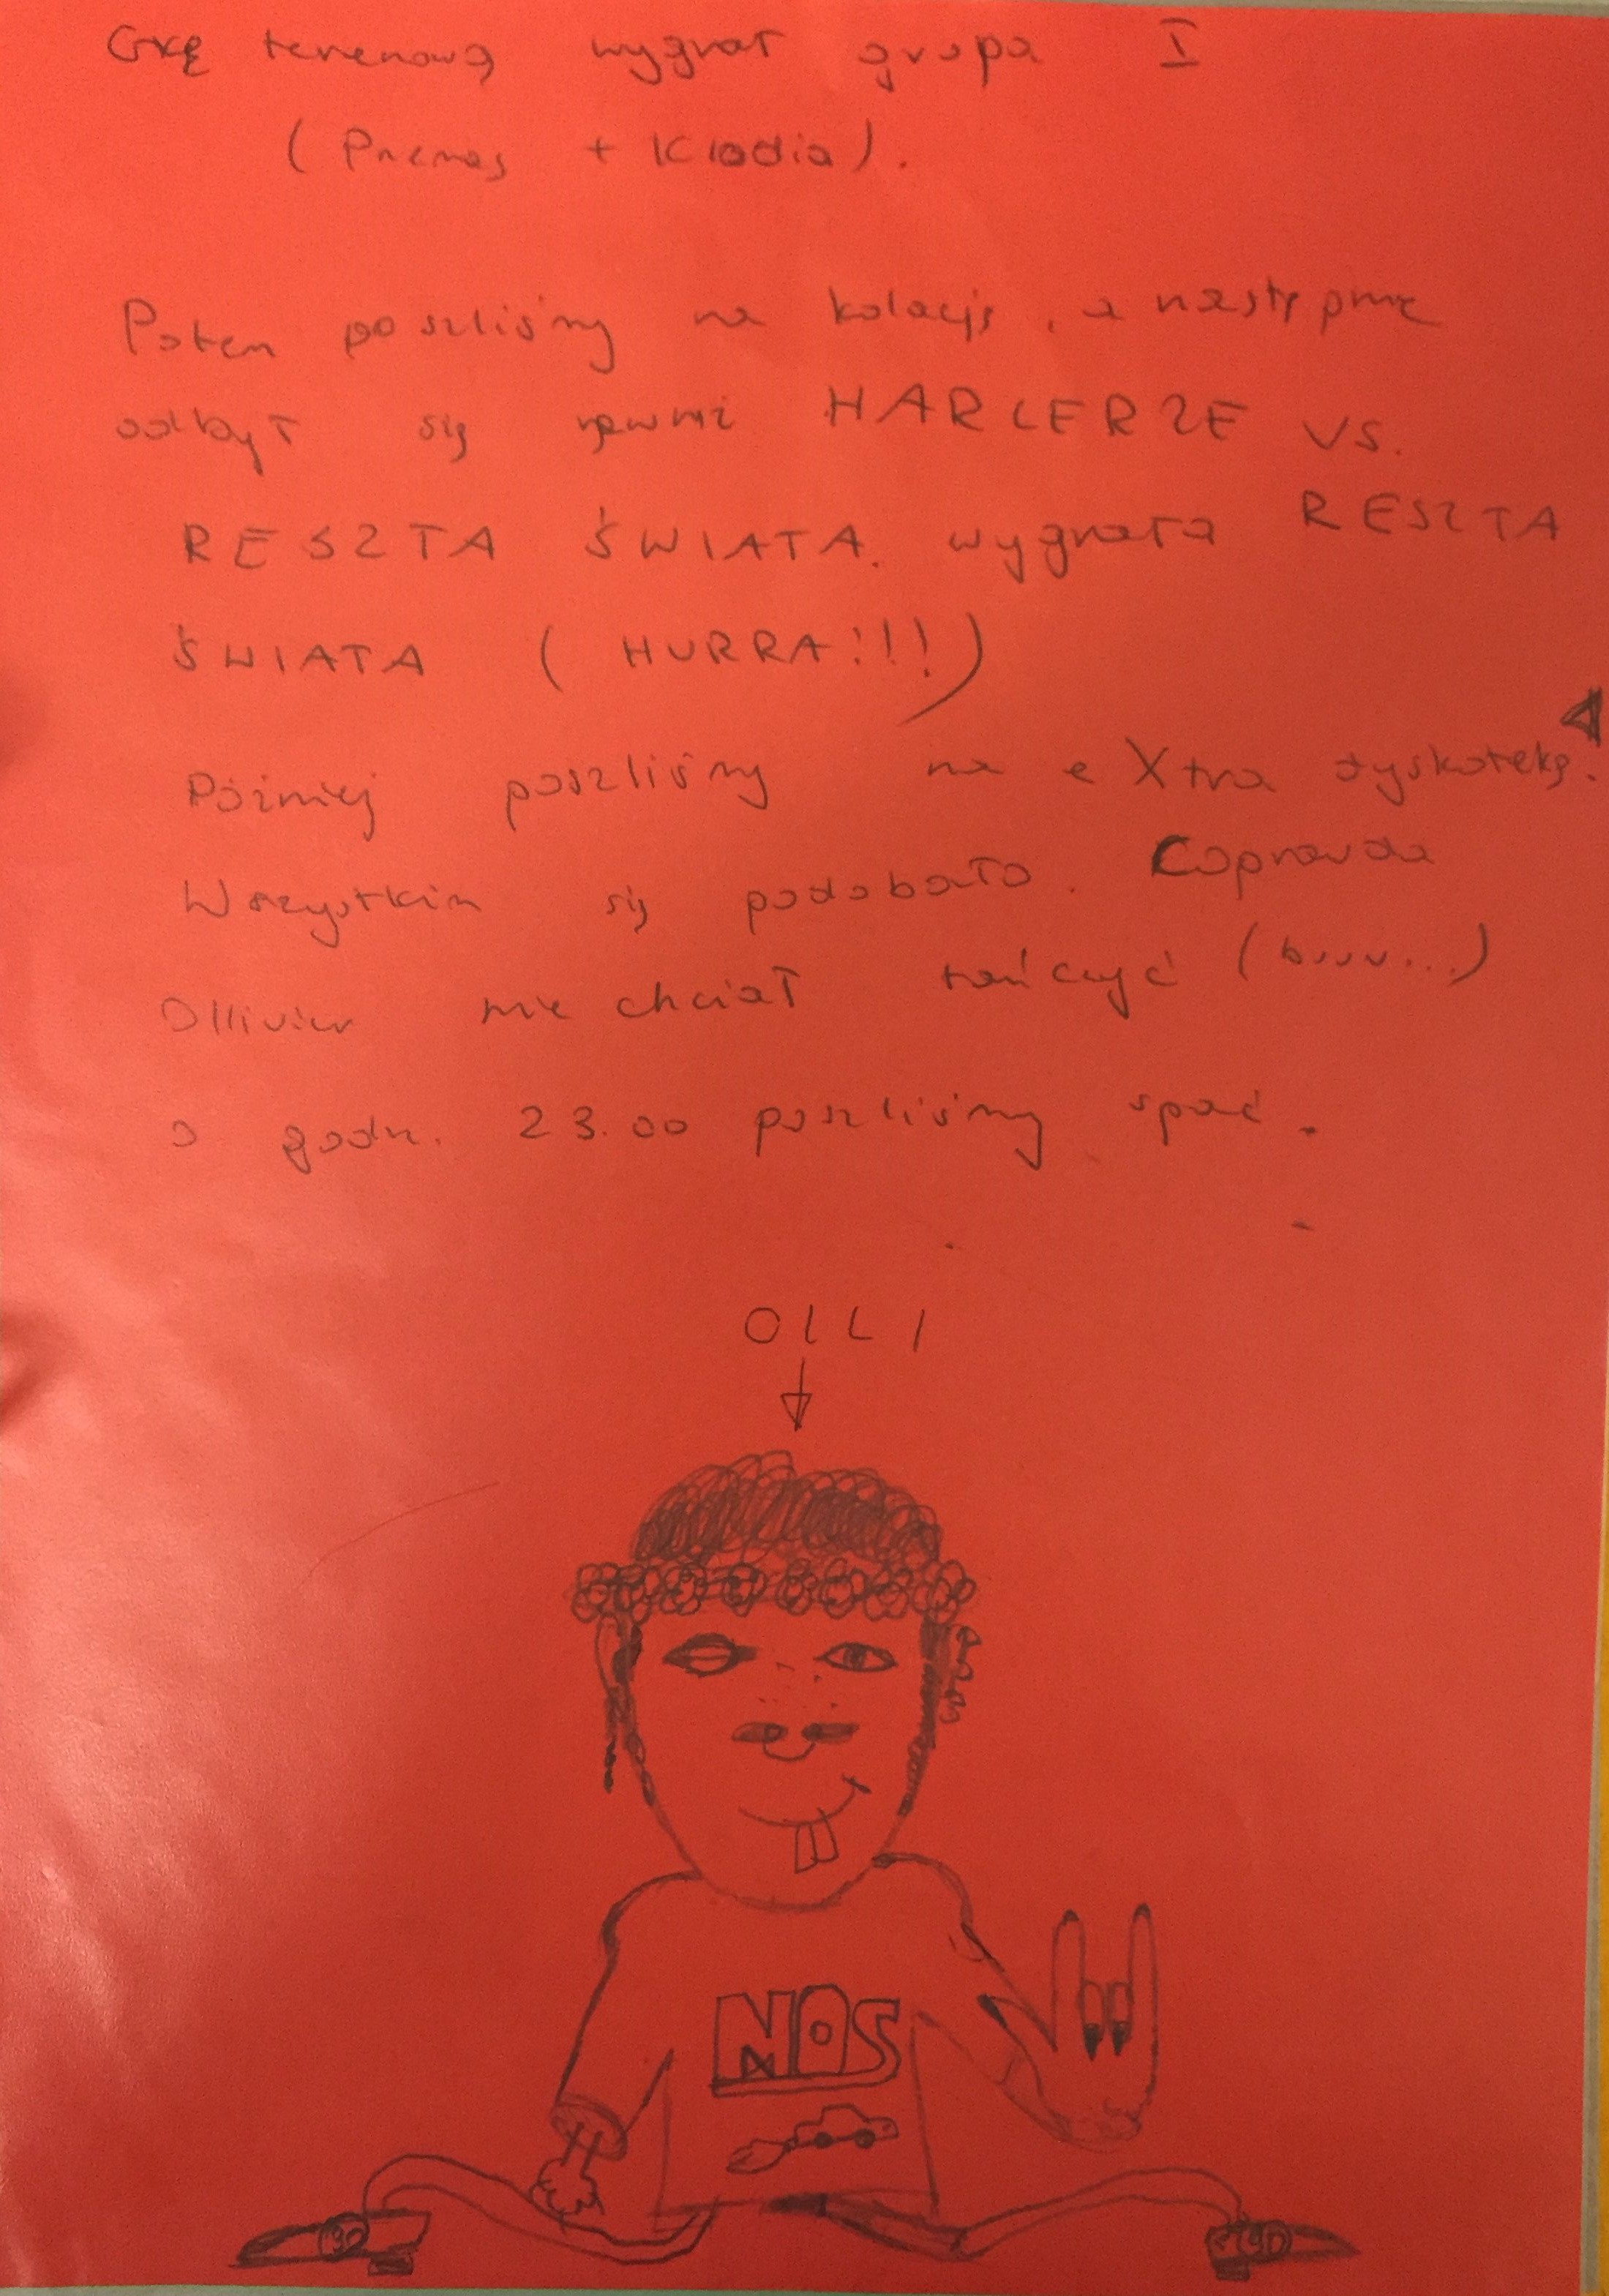 Grę terenową wygrał grupa I
( + Klodia).
Potem poszliśmy na kolację, a następnie
odbył się HARCERZE VS.
RESZTA ŚWIATA. wygrała RESZTA
ŚWIATA (HURRA!!!)
Później poszliśmy na eXtra dyskotekę.
Wszystkim się podobało. Coprawda
Ollivier nie chciał tańczyć (buuu...)
o godz. 23.00 poszliśmy spać.
OLLI
NOS